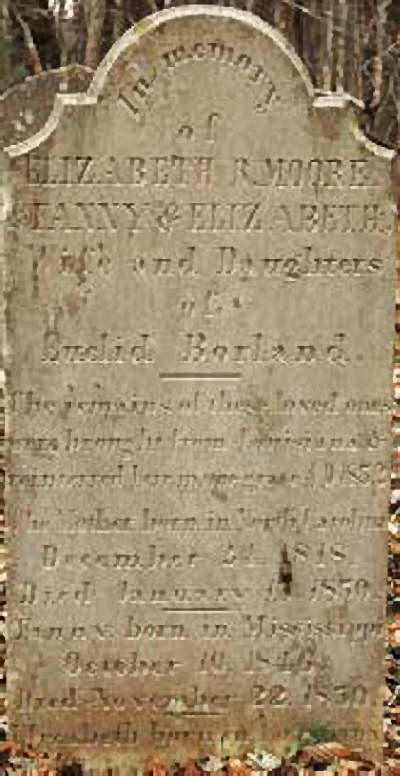 In memory
of
ELIZABETH R. MOORE
FANNY & ELIZABETH,
Wife and Daughters
of
Euclid Borland.
The remains of these loved ones
were brought from Louisiana &
reinterred 1852
The Mother born in North Carolina
December 24, 1818.
Died January 1850.
Fanny born in Mississippi
October 10, 1846.
Died November 22, 1850.
Elizabeth born in Louisiana